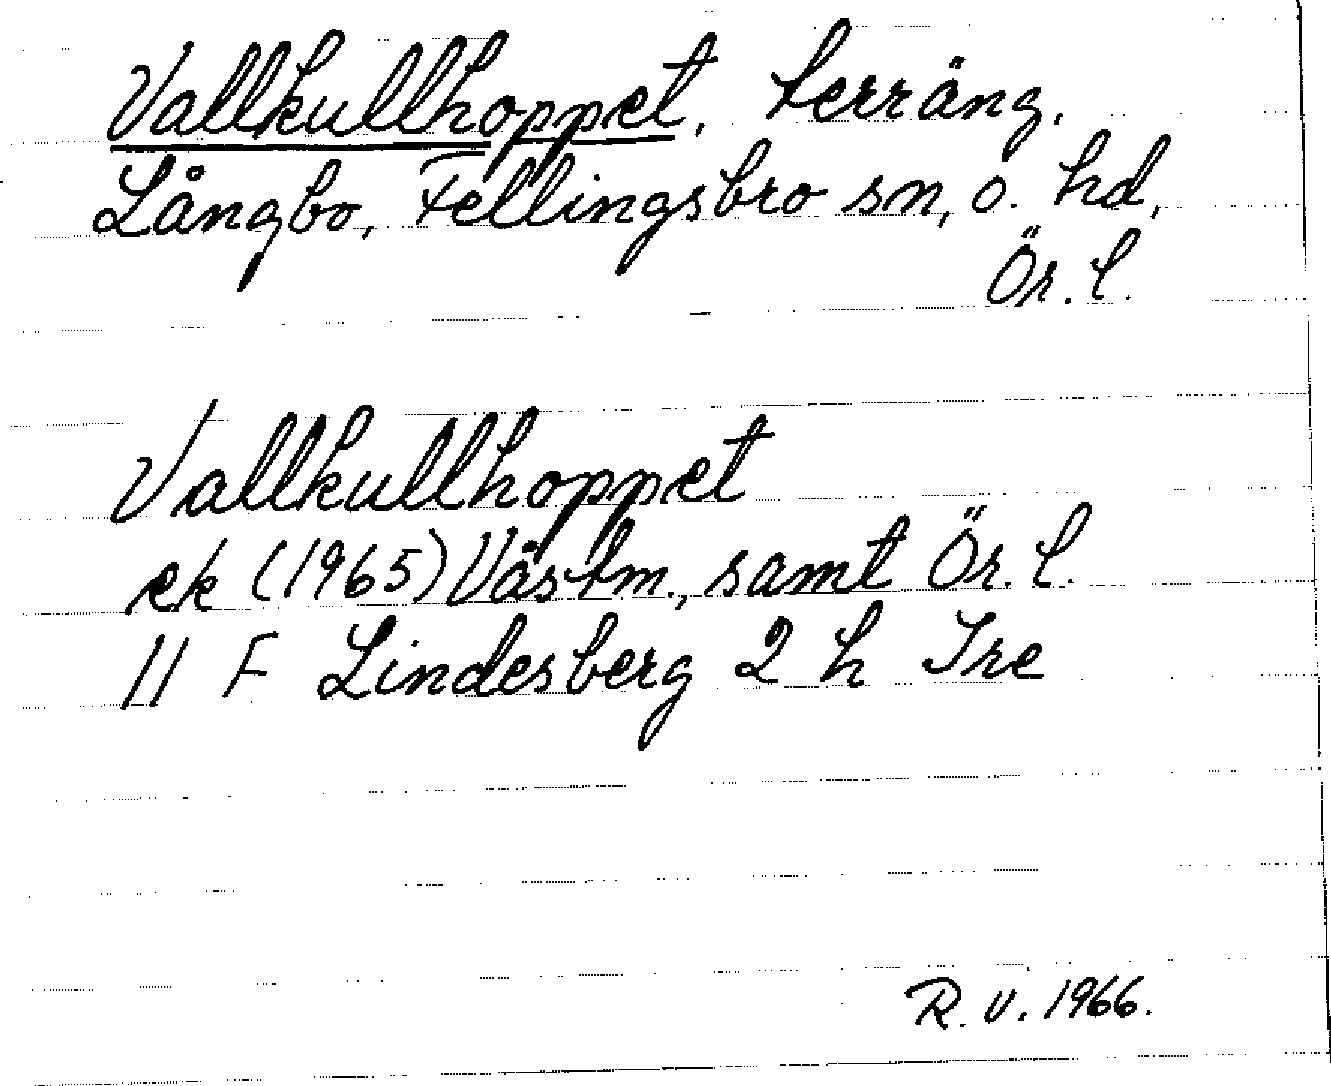 Vallkullhoppet, terräng.
Långbo, Fellingsbro sn, o. hd,
Ör. l.
Vallkullhoppet
ek (1965) Västm., samt Ör. l.
11 F Lindesberg 2 h Tre
R. V. 1966.